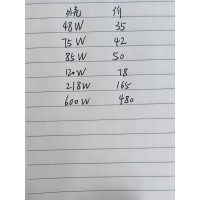 外壳 价
48W 35
75W 42
85W 50
120W 78
218W 165
600W 480